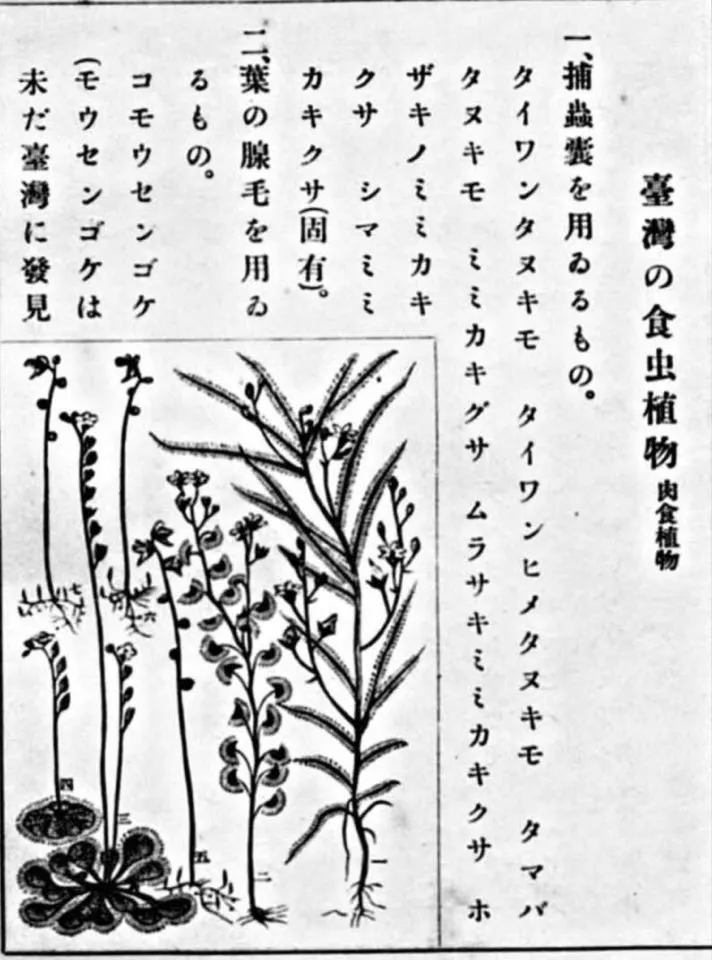 臺灣の食虫植物 肉食植物
一、捕蟲囊を用ゐるもの。
タイワンタヌキモ タイワンヒメタヌキモ タマバ
タヌキモ ミミカキグサ ムラサキミミカキクサ ホ
ザキノミミカキ
クサ シマミミ
カキクサ(固有)。
二、葉の腺毛を用ゐ
るもの。
コモウセンゴケ
(モウセンゴケは
未だ臺灣に發見
一
二
三
四
五